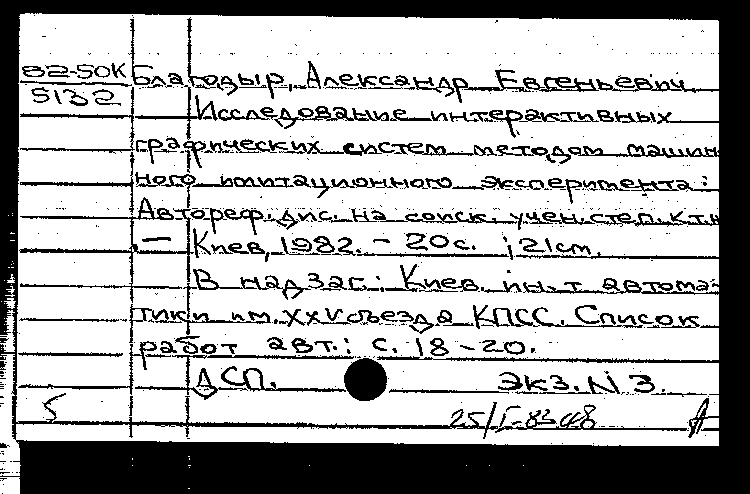 82-50К Благодыр, Александр Евгеньевич.
5132 Исследование интерактивных
графических систем методом машин-
ного имитационного эксперимента:
Автореф. дис. на соиск. учен. степ. к.т.н
— Киев, 1982. - 20 с. ; 21 см.
В надзаг.: Киев. ин-т автома-
тики им. XXV съезда КПСС. Список
работ авт.: с. 18-20.
ДСП. Экз. N 3.
5